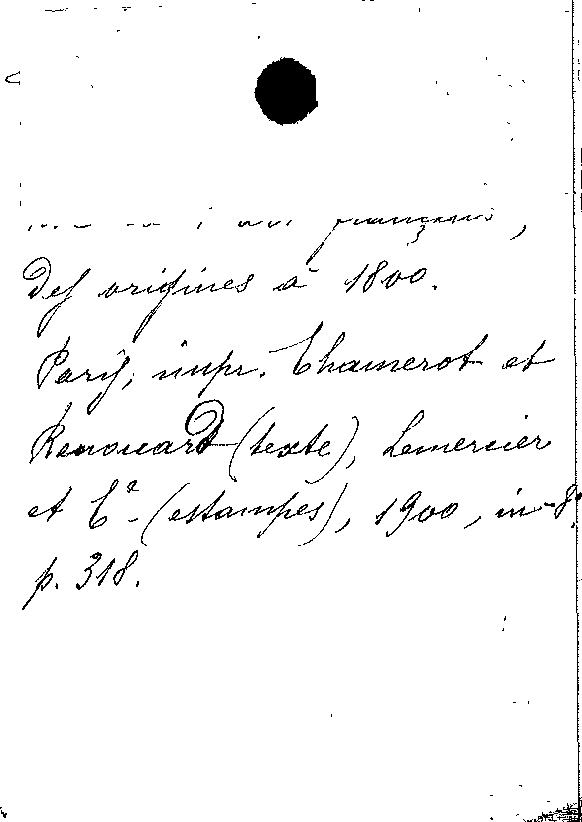 français,
des origines à 1800.
Paris, impr. Chamerot et
Renouard (texte), Lemercier
et Cie (estampes), 1900, in-8º
p. 318.